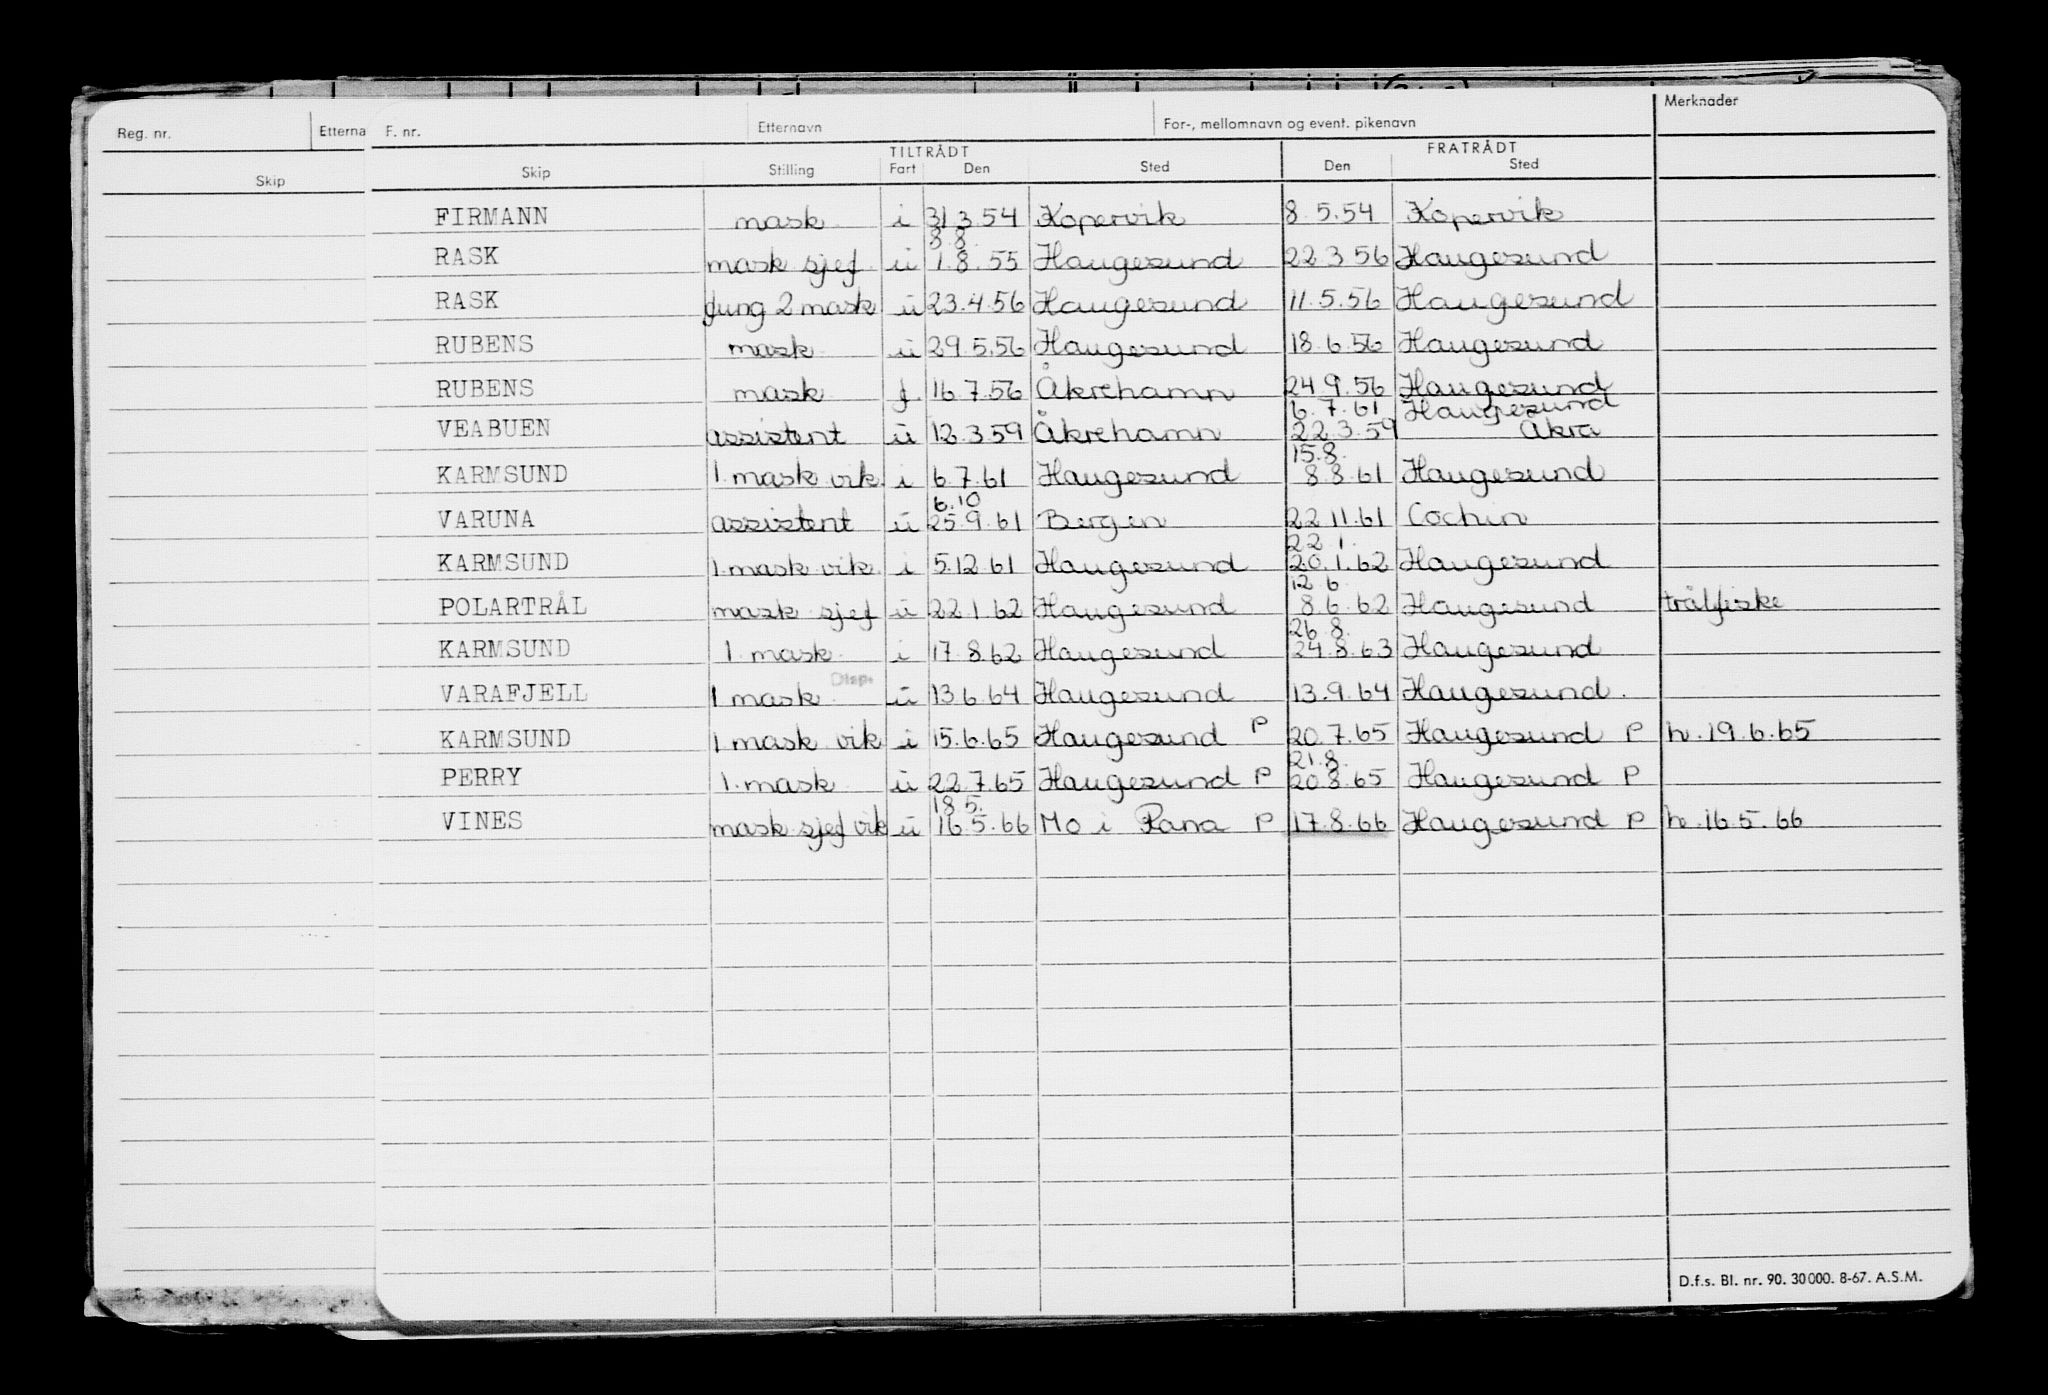 Reg. nr. Etterna F. nr. Etternavn For-, mellomnavn og event. pikenavn Merknader
TILTRÅDT FRATRÅDT
Skip Skip Stilling Fart Den Sted Den Sted
FIRMANN mask i 31.3.54 Kopervik 8.5.54 Kopervik
8.8.
RASK mask sjef u 1.8.55 Haugesund 22.3.56 Haugesund
RASK fung 2 mask u 23.4.56 Haugesund 11.5.56 Haugesund
RUBENS mask u 29.5.56 Haugesund 18.6.56 Haugesund
RUBENS mask f. 16.7.56 Åkrehamn 24.9.56 Haugesund
6.7.61 Haugesund
VEABUEN assistent u 12.3.59 Åkrehamn 22.3.59 Åkra
15.8.
KARMSUND 1. mask vik. i 6.7.61 Haugesund 8.8.61 Haugesund
6.10
VARUNA assistent u 25.9.61 Bergen 22.11.61 Cochin
22 1.
KARMSUND 1. mask vik. i 5.12.61 Haugesund 20.1.62 Haugesund
12 6.
POLARTRÅL mask sjef u 22.1.62 Haugesund 8.6.62 Haugesund trålfiske
26 8.
KARMSUND 1. mask i 17.8.62 Haugesund 24.8.63 Haugesund
Disp.
VARAFJELL 1 mask u 13.6.64 Haugesund 13.9.64 Haugesund.
KARMSUND 1 mask vik i 15.6.65 Haugesund P 20.7.65 Haugesund P h.19.6.65
21.8.
PERRY 1. mask u 22.7.65 Haugesund P 20.8.65 Haugesund P
18 5.
VINES mask sjef vik u 16.5.66 Mo i Rana P 17.8.66 Haugesund P h.16.5.66
D.f.s. Bl. nr. 90. 30 000. 8-67. A.S.M.